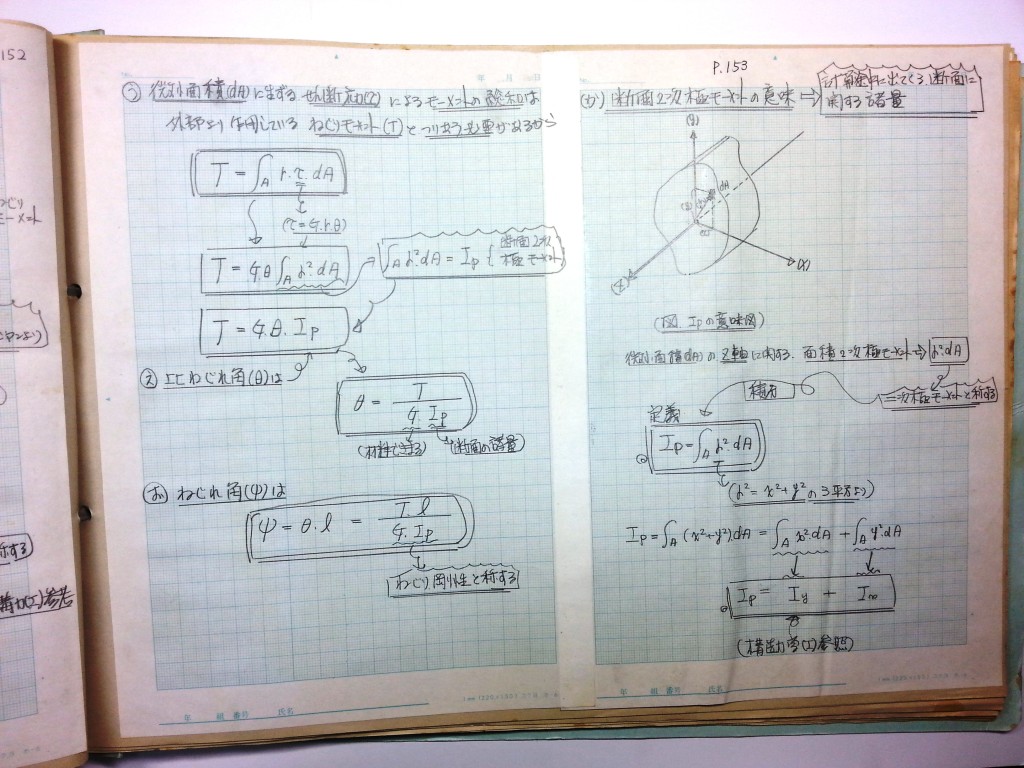 152
ねじり
モーメント
P.153
年 月 日
う) 微小面積(dA)に生ずるせん断応力(τ)によるモーメントの総和は
外部より作用しているねじりモーメント(T)とつり合う必要があるから
T = ∫_A r・τ dA
(τ=G・r・θ)
T = G・θ ∫_A r²・dA
∫_A r²・dA = Ip { 断面2次極モーメント
T = G・θ・Ip
え) 比ねじれ角(θ)は
θ = T / G・Ip
(材料できまる) (断面の諸量)
お) ねじれ角(ψ)は
ψ = θ・l = T・l / G・Ip
ねじり剛性と称する
年 組 番号 氏名
か) 断面2次極モーメントの意味 ⇒ 計算途中に出てくる、断面に
関する諸量
(y)
dA
(x)
(z)
(図. Ipの意味図)
微小面積(dA)のz軸に関する、面積2次極モーメント⇒ r²・dA
積分
二次極モーメントと称する
定義
Ip = ∫_A r²・dA
(r² = x²+y² の3平方より)
Ip = ∫_A (x²+y²)・dA = ∫_A x²・dA + ∫_A y²・dA
Ip = Iy + Ix
(構造力学(I)参照)
年 組 番号 氏名
称する
(I)参考